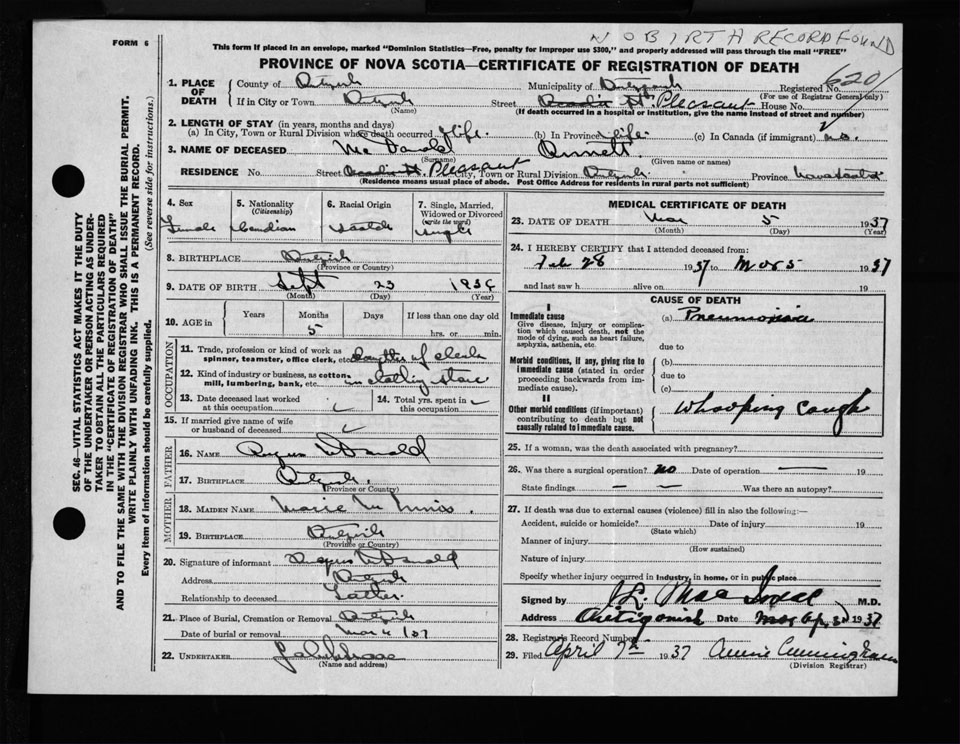 NO BIRTH RECORD FOUND
FORM 6
This form if placed in an envelope, marked "Dominion Statistics—Free, penalty for improper use $300," and properly addressed will pass through the mail "FREE"
PROVINCE OF NOVA SCOTIA—CERTIFICATE OF REGISTRATION OF DEATH
620
1. PLACE OF DEATH
County of
Municipality of
Registered No.
(For use of Registrar General only)
If in City or Town
(Name)
Street Pleasant House No.
(If death occurred in a hospital or institution, give the name instead of street and number)
2. LENGTH OF STAY (in years, months and days)
(a) In City, Town or Rural Division where death occurred life. (b) In Province life. (c) In Canada (if immigrant)
3. NAME OF DECEASED McDonald
(Surname) (Given name or names)
RESIDENCE No. Street Pleasant City, Town or Rural Division Province Nova Scotia
(Residence means usual place of abode. Post Office Address for residents in rural parts not sufficient)
4. Sex
Female
5. Nationality
(Citizenship)
Canadian
6. Racial Origin
Scotch
7. Single, Married, Widowed or Divorced
(write the word)
Single
8. BIRTHPLACE
(Province or Country)
9. DATE OF BIRTH Sept 23 1936
(Month) (Day) (Year)
10. AGE in
Years Months Days If less than one day old
5 hrs. or min.
OCCUPATION
11. Trade, profession or kind of work as spinner, teamster, office clerk, etc. daughter of clerk
12. Kind of industry or business, as cotton mill, lumbering, bank, etc. in clothing store
13. Date deceased last worked at this occupation
14. Total yrs. spent in this occupation
15. If married give name of wife or husband of deceased
FATHER
16. NAME Angus McDonald
17. BIRTHPLACE
(Province or Country)
MOTHER
18. MAIDEN NAME Marie McInnis
19. BIRTHPLACE
(Province or Country)
20. Signature of informant Angus McDonald
Address
Relationship to deceased Father
21. Place of Burial, Cremation or Removal
Date of burial or removal
22. UNDERTAKER
(Name and address)
MEDICAL CERTIFICATE OF DEATH
23. DATE OF DEATH Mar 5 1937
(Month) (Day) (Year)
24. I HEREBY CERTIFY that I attended deceased from:
Feb 28 1937 to Mar 5 1937
and last saw h alive on 19
CAUSE OF DEATH
I
Immediate cause
Give disease, injury or complication which caused death, not the mode of dying, such as heart failure, asphyxia, asthenia, etc.
(a) Pneumonia
due to
Morbid conditions, if any, giving rise to immediate cause (stated in order proceeding backwards from immediate cause).
(b)
due to
(c)
II
Other morbid conditions (if important) contributing to death but not causally related to immediate cause.
Whooping Cough
25. If a woman, was the death associated with pregnancy?
26. Was there a surgical operation? no Date of operation — 19
State findings — — Was there an autopsy?
27. If death was due to external causes (violence) fill in also the following:—
Accident, suicide or homicide? Date of injury 19
(State which)
Manner of injury
(How sustained)
Nature of injury
Specify whether injury occurred in industry, in home, or in public place
Signed by M.D.
Address Antigonish Date 1937
28. Registrar's Record Number
29. Filed April 7th 1937 Annie Cunningham
(Division Registrar)
SEC. 46—VITAL STATISTICS ACT MAKES IT THE DUTY
OF THE UNDERTAKER OR PERSON ACTING AS UNDER-
TAKER TO OBTAIN ALL THE PARTICULARS REQUIRED
IN THE "CERTIFICATE OF REGISTRATION OF DEATH"
AND TO FILE THE SAME WITH THE DIVISION REGISTRAR WHO SHALL ISSUE THE BURIAL PERMIT.
WRITE PLAINLY WITH UNFADING INK. THIS IS A PERMANENT RECORD.
Every item of information should be carefully supplied. (See reverse side for instructions.)